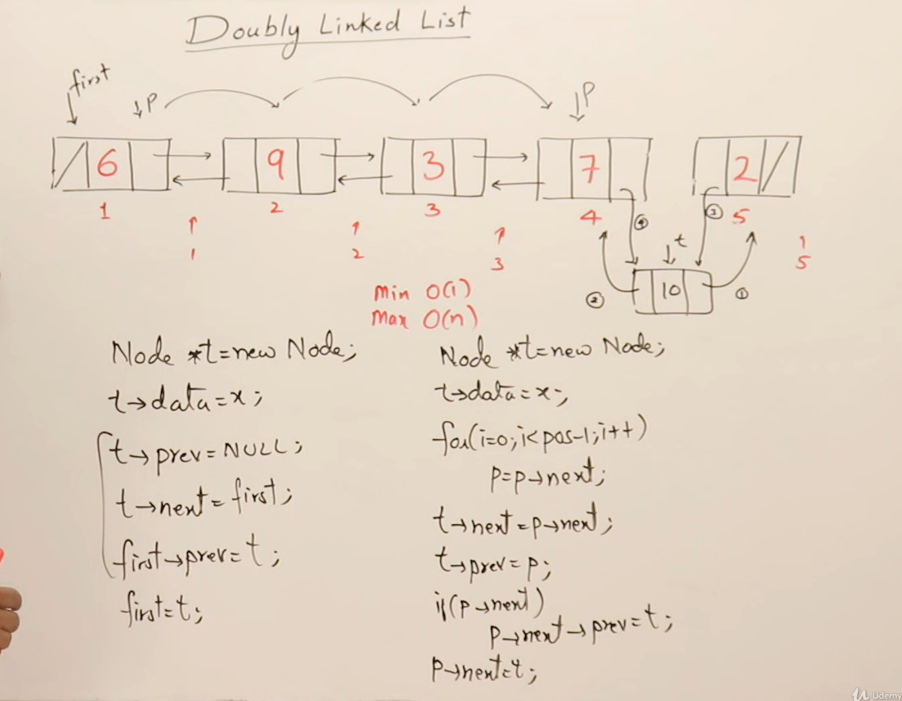 Doubly Linked List
first
P
P
6 9 3 7 2
1 2 3 4 5
1 2 3 5
④ ③
t
10
② ①
Min O(1)
Max O(n)
Node *t=new Node;
t→data=x;
t→prev=NULL;
t→next=first;
first→prev=t;
first=t;
Node *t=new Node;
t→data=x;
for(i=0;i<pos-1;i++)
P=P→next;
t→next=p→next;
t→prev=p;
if(p→next)
P→next→prev=t;
P→next=t;
Udemy